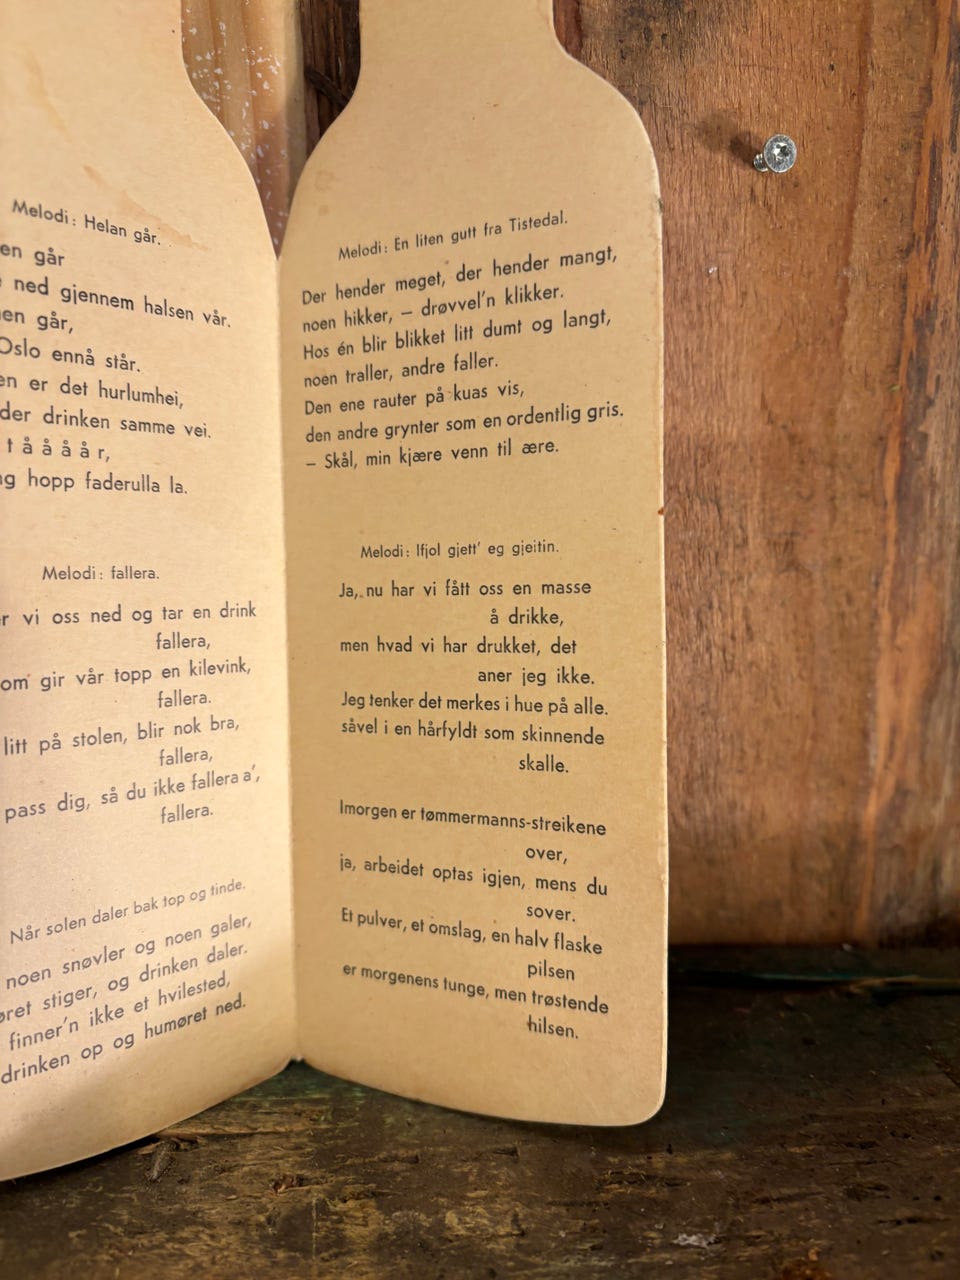 Melodi: Helan går.
går
ned gjennem halsen vår.
går,
Oslo ennå står.
er det hurlumhei,
der drinken samme vei.
t å å å å r,
hopp faderulla la.
Melodi: fallera.
vi oss ned og tar en drink
fallera,
om gir vår topp en kilevink,
fallera.
litt på stolen, blir nok bra,
fallera,
pass dig, så du ikke fallera a',
fallera.
Når solen daler bak top og tinde.
noen snøvler og noen galer,
stiger, og drinken daler.
finner'n ikke et hvilested,
drinken op og humøret ned.
Melodi: En liten gutt fra Tistedal.
Der hender meget, der hender mangt,
noen hikker, — drøvvel'n klikker.
Hos én blir blikket litt dumt og langt,
noen traller, andre faller.
Den ene rauter på kuas vis,
den andre grynter som en ordentlig gris.
— Skål, min kjære venn til ære.
Melodi: Ifjol gjett' eg gjeitin.
Ja, nu har vi fått oss en masse
å drikke,
men hvad vi har drukket, det
aner jeg ikke.
Jeg tenker det merkes i hue på alle.
såvel i en hårfyldt som skinnende
skalle.
Imorgen er tømmermanns-streikene
over,
ja, arbeidet optas igjen, mens du
sover.
Et pulver, et omslag, en halv flaske
pilsen
er morgenens tunge, men trøstende
hilsen.